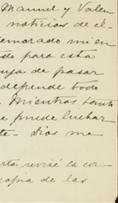 Manuel y Valen
noticias de el-
emorado mi en
de para esta
de pasar
depende todo
Mientras tanto
puede luchar
te. Dios me
revisé la cor
copia de las